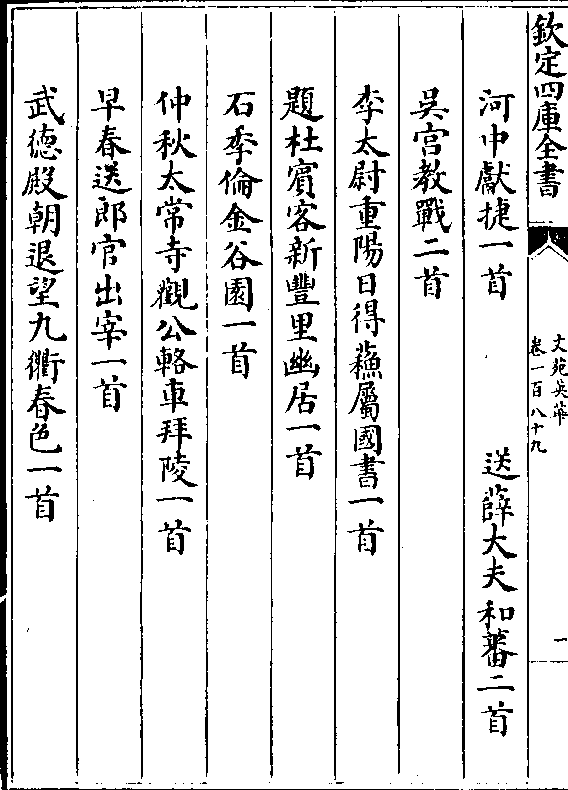 欽定四庫全書
文苑英華
卷一百八十九
一
河中獻捷一首
送薛大夫和蕃二首
吳宫教戰二首
李太尉重陽日得蘓屬國書一首
題杜賓客新豐里幽居一首
石季倫金谷園一首
仲秋太常寺觀公輅車拜陵一首
早春送郎官出宰一首
武徳殿朝退望九衢春色一首